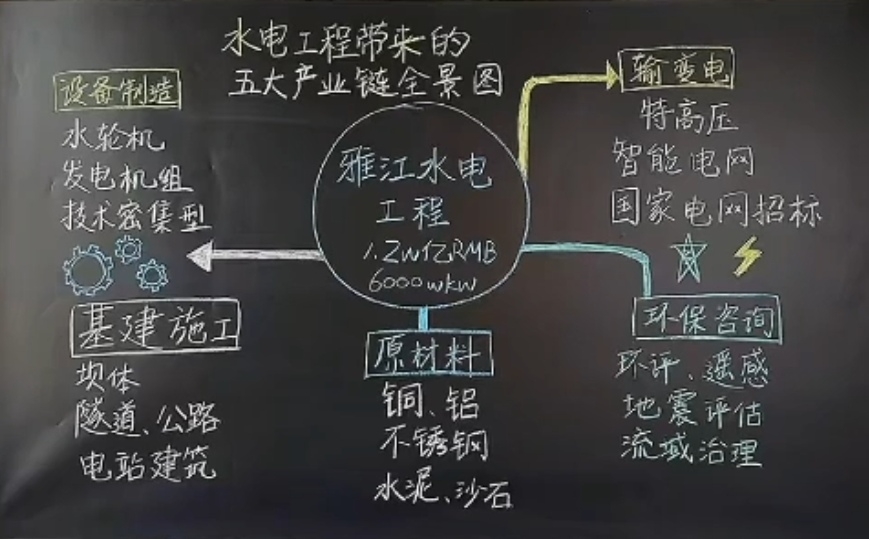 水电工程带来的
五大产业链全景图
设备制造
水轮机
发电机组
技术密集型
雅江水电
工程
1.2w亿RMB
6000wkw
输变电
特高压
智能电网
国家电网招标
基建施工
坝体
隧道、公路
电站建筑
原材料
铜、铝
不锈钢
水泥、沙石
环保咨询
环评、遥感
地震评估
流域治理